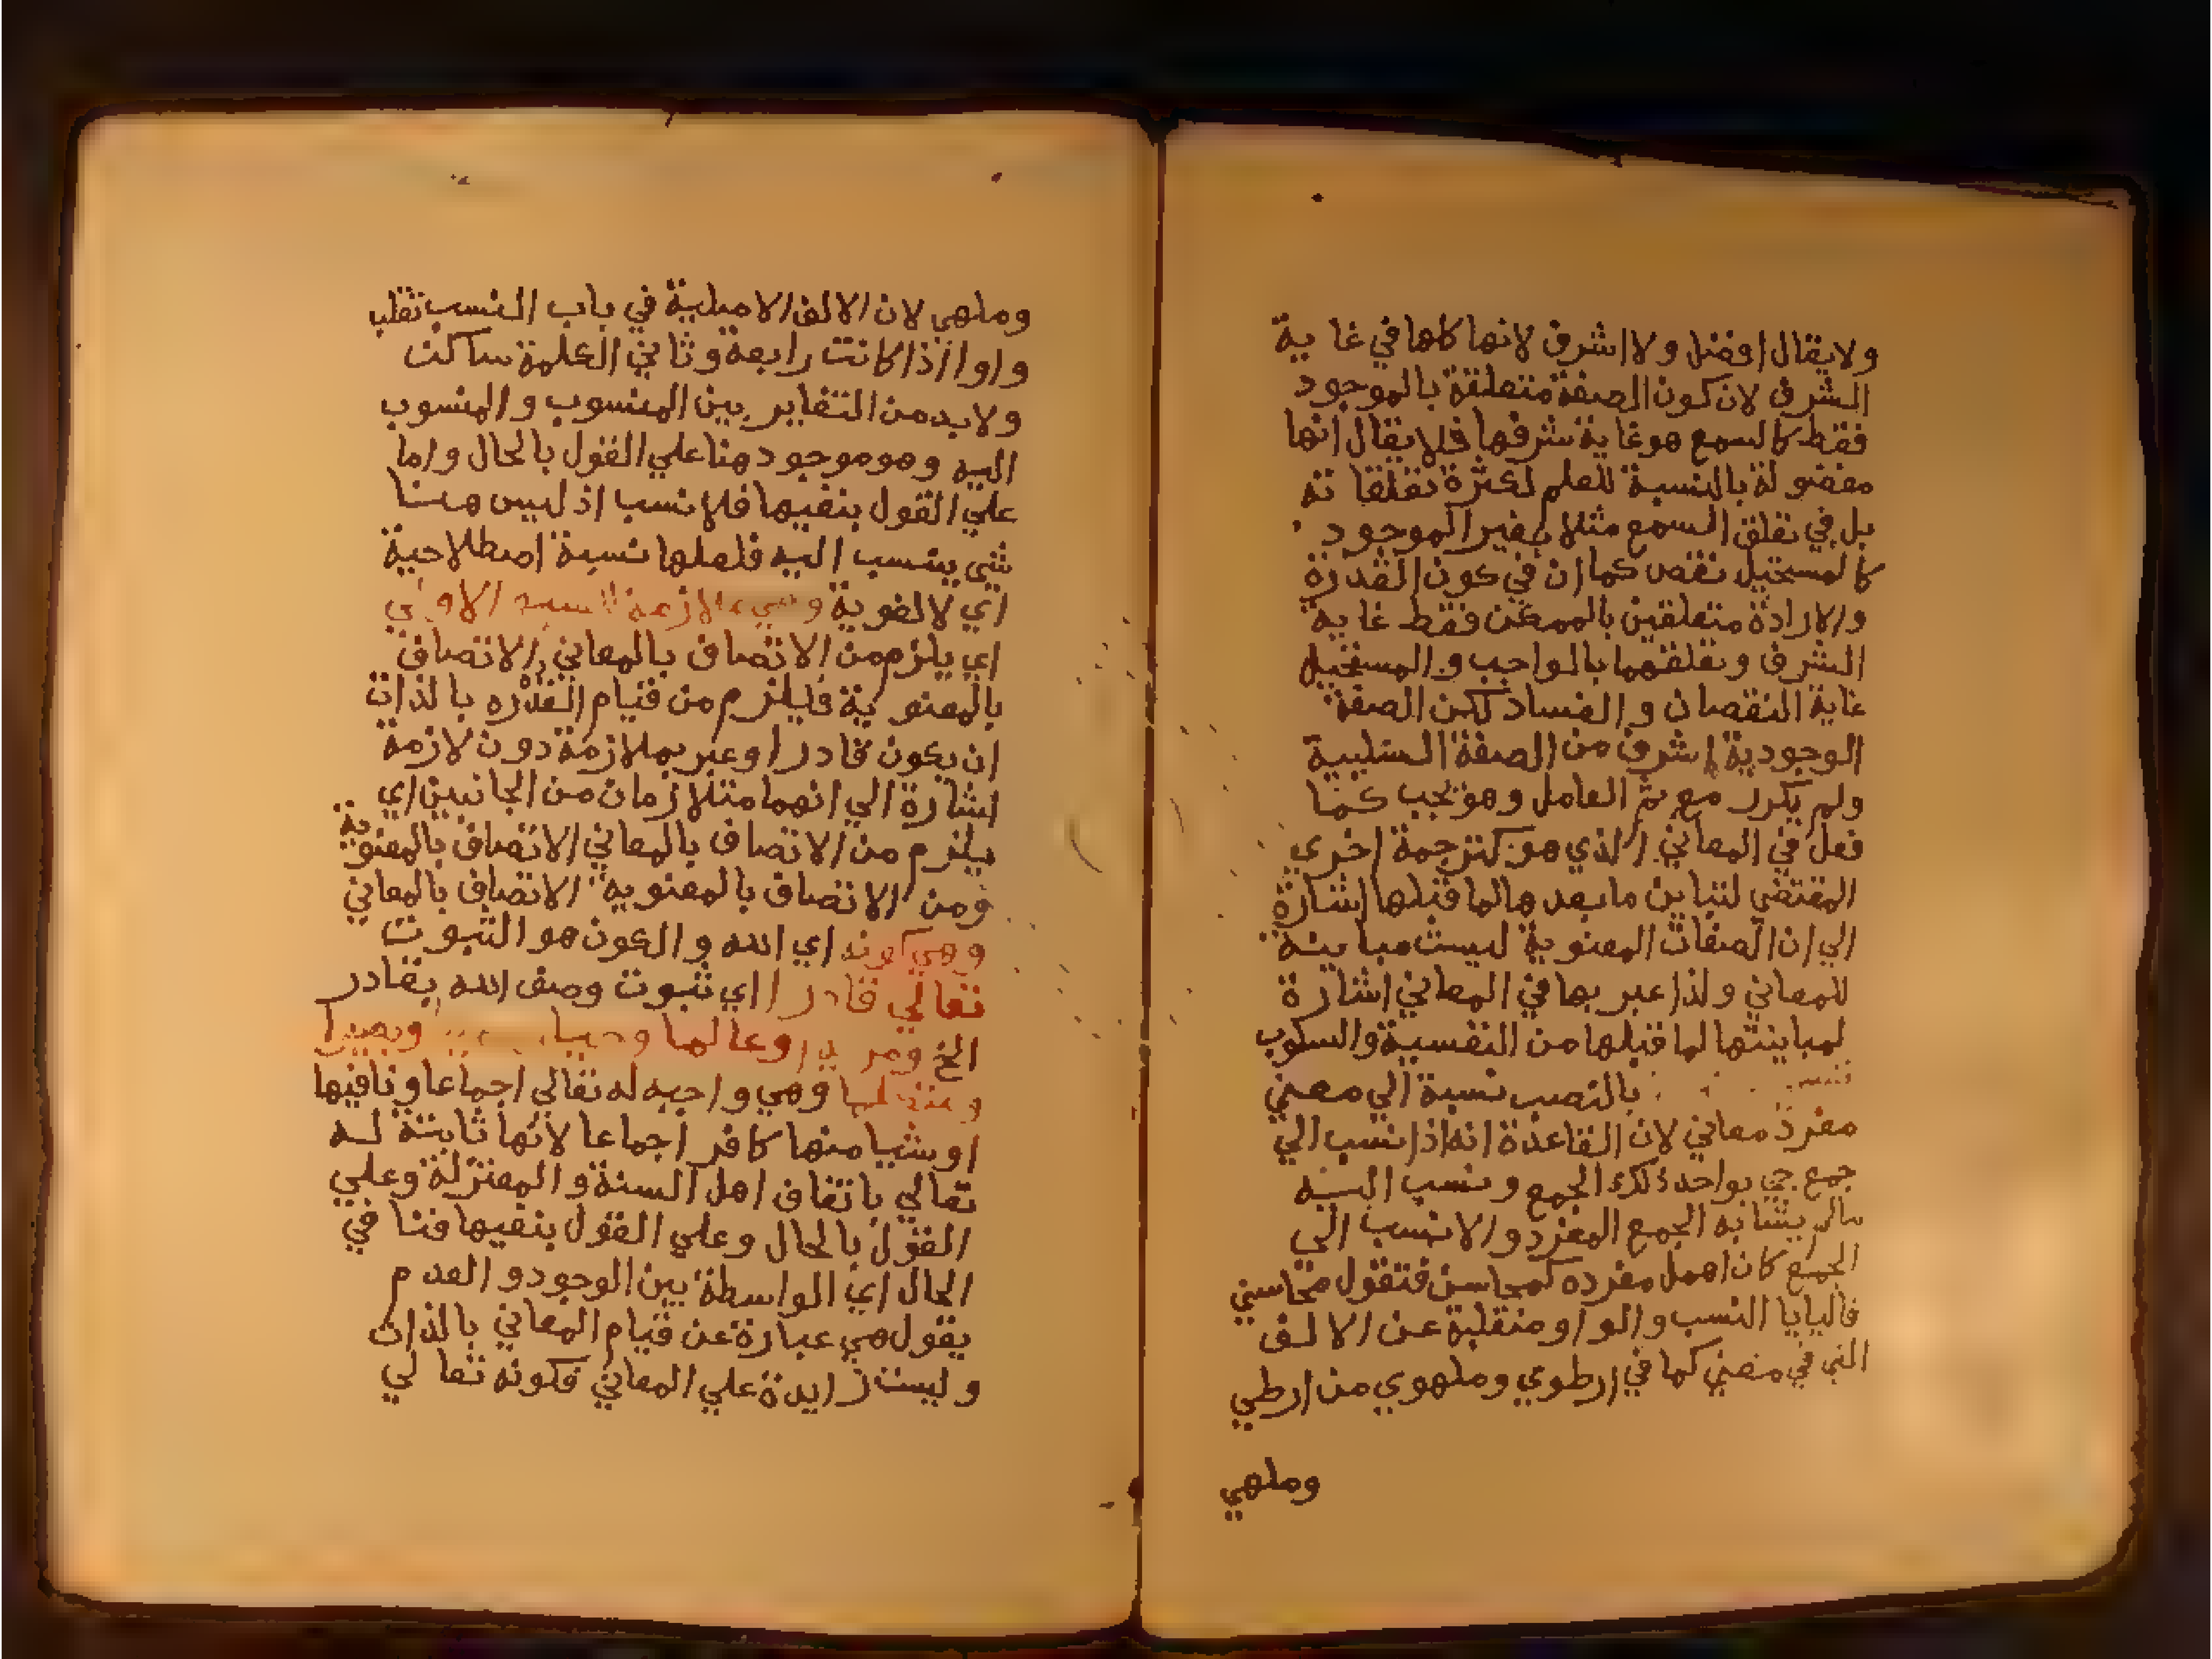 ولا يقال افضل ولا اشرف لانها كلها في غاية
الشرف لان كون الصفة متعلقة بالموجود
فقط كالسمع هو غاية شرفها فلا يقال انها
مفضولة بالنسبة للعلم لكثرة تعلقاته
بل في تعلق السمع مثلا بغير الموجود
كالمستحيل نقص كما ان في كون القدرة
والارادة متعلقين بالممكن فقط غاية
الشرف وتعلقهما بالواجب والمستحيل
غاية النقصان والفساد لكن الصفة
الوجودية اشرف من الصفة السلبية
ولم يكرر مع ثم العامل وهو يجب كما
فعل في المعاني الذي هو كترجمة اخري
المقتضي لتباين ما بعدها لما قبلها اشارة
الي ان الصفات المعنوية ليست مباينة
للمعاني ولذا عبر بها في المعاني اشارة
لمباينتها لما قبلها من النفسية والسلوب
بالنصب نسبة الي معني
مفرد معاني لان القاعدة انه اذا نسب الي
جمع جي بواحد ذلك الجمع ونسب اليه
مالم يشابه الجمع المفرد والا نسب الي
الجمع كان اهمل مفرده كمحاسن فتقول محاسني
فاليا يا النسب والواو منقلبة عن الالف
التي في معني كما في ارطوي وملهوي من ارطي
وملهي
وملهي لان الالف الاصلية في باب النسب تقلب
واوا اذا كانت رابعة وثاني الكلمة ساكن
ولا بد من التغاير بين المنسوب والمنسوب
اليه وهو موجود هنا علي القول بالحال واما
علي القول بنفيها فلا نسب اذ ليس هنا
شي ينسب اليه فلعلها نسبة اصطلاحية
اي لا لغوية وهي ملازمة للسبع الاولي
اي يلزم من الاتصاف بالمعاني الاتصاف
بالمعنوية فيلزم من قيام القدره بالذات
ان يكون قادرا وعبر بملازمة دون لازمة
اشارة الي انهما متلازمان من الجانبين اي
يلزم من الاتصاف بالمعاني الاتصاف بالمعنوية
ومن الاتصاف بالمعنوية الاتصاف بالمعاني
وهي كونه اي الله والكون هو الثبوت
تعالي قادرا اي ثبوت وصف الله بقادر
الخ ومريدا وعالما وحيا وبصيرا
ومتكلما وهي واجبه له تعالي اجماعا ونافيها
او شيا منها كافر اجماعا لانها ثابتة له
تعالي باتفاق اهل السنة والمعتزلة وعلي
القول بالحال وعلي القول بنفيها فنافي
الحال اي الواسطة بين الوجود والعدم
يقول هي عبارة عن قيام المعاني بالذات
وليست زايدة علي المعاني فكونه تعالي